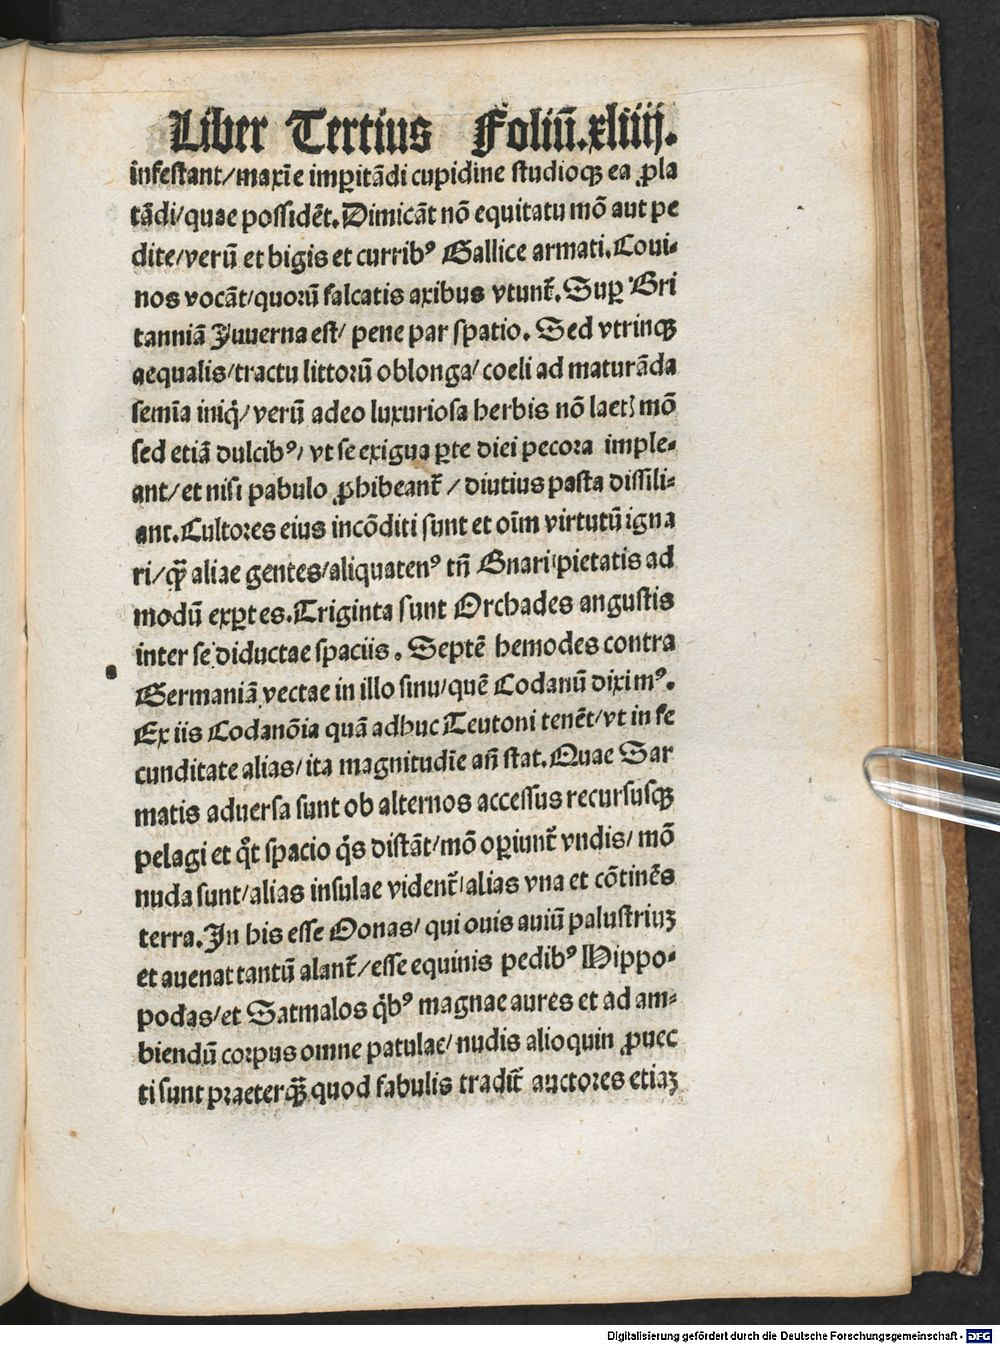 Liber Tertius Foliū.xliiij.
infestant/maxīe imꝑitādi cupidine studioqꝫ ea ꝓla
tādi/quae possidēt.Dimicāt nō equitatu mō aut pe
dite/verū et bigis et curribꝰ Gallice armati.Coui⸗
nos vocāt/quoꝛū falcatis axibus vtunt᷑.Suꝑ Bri
tanniā Juuerna est/ pene par spatio. Sed vtrinqꝫ
aequalis/tractu littoꝛū oblonga/coeli ad maturāda
semīa iniq̇/verū adeo luxuriosa herbis nō laetꝭ mō
sed etiā dulcibꝰ/ vt se exigua ꝑte diei pecoꝛa imple⸗
ant/et nisi pabulo ꝓhibeant᷑/diutius pasta dissili⸗
ant.Cultoꝛes eius incōditi sunt et oīm virtutū igna
ri/q̄ꝫ aliae gentes/aliquatenꝰ tn̄ Gnari/pietatis ad
modū exꝑtes.Triginta sunt Orchades angustis
inter se diductae spaciis. Septē hemodes contra
Germaniā vectae in illo sinu/quē Codanū diximꝰ.
Ex iis Codanōia quā adhuc Teutoni tenēt/vt in fe
cunditate alias/ita magnitudīe an̄ stat.Quae Sar
matis aduersa sunt ob alternos accessus recursusqꝫ
pelagi et q̇t spacio q̇s distāt/mō oꝑiunt᷑ vndis/mō
nuda sunt/alias insulae vident᷑/alias vna et cōtinēs
terra.Jn his esse Oonas/qui ouis auiū palustriuꝫ
et auenat tantū alant᷑/esse equinis pedibꝰ Hippo⸗
podas/et Satmalos q̇bꝰ magnae aures et ad am⸗
biendū coꝛpus omne patulae/nudis alioquin ꝓuec
ti sunt praeterq̄ꝫ quod fabulis tradit᷑ auctoꝛes etiaꝫ
Digitalisierung gefördert durch die Deutsche Forschungsgemeinschaft - DFG